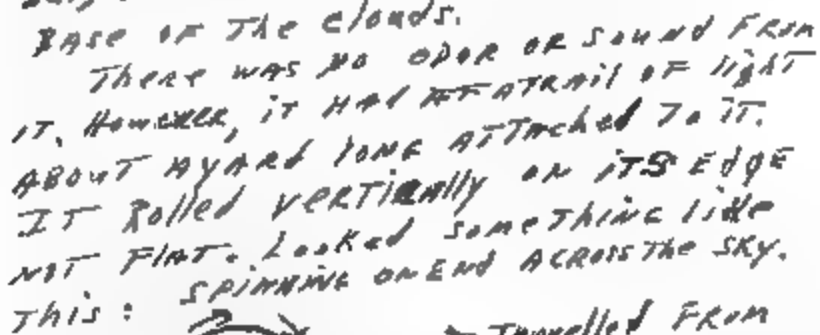 BASE OF THE Clouds.
There was NO ODOR OR sound From
IT. However, iT HAd A TRAil OF light
ABOUT A YARd lONG ATTAched To iT.
IT Rolled VERTiCAlly ON iTS EdgE
NOT FlAT. Looked SomeThiNG like
This: SpiNNiNG ON ENd ACROSS The SKy.
TRAvelled From